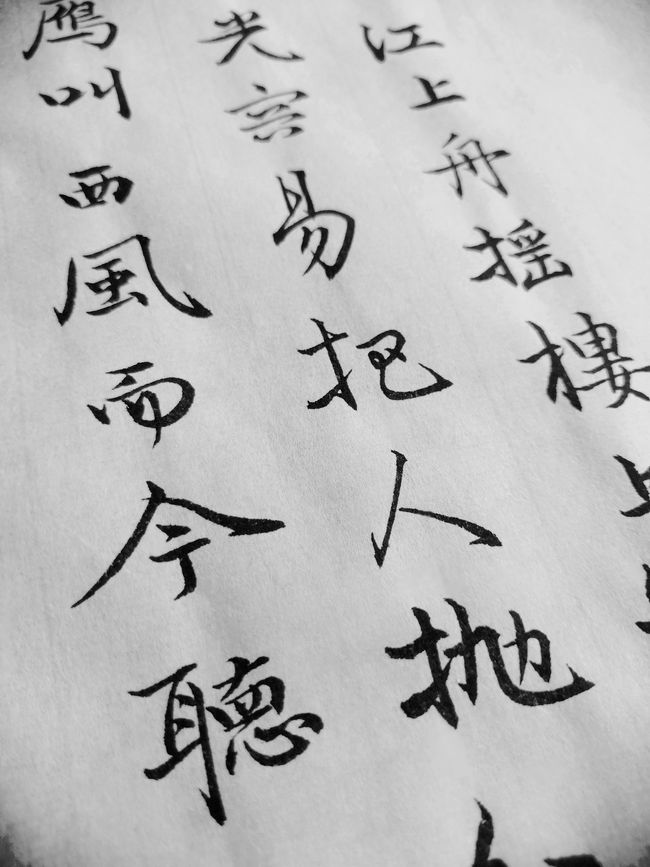 江上舟摇樓上
光容易把人抛
鴈叫西風而今聽